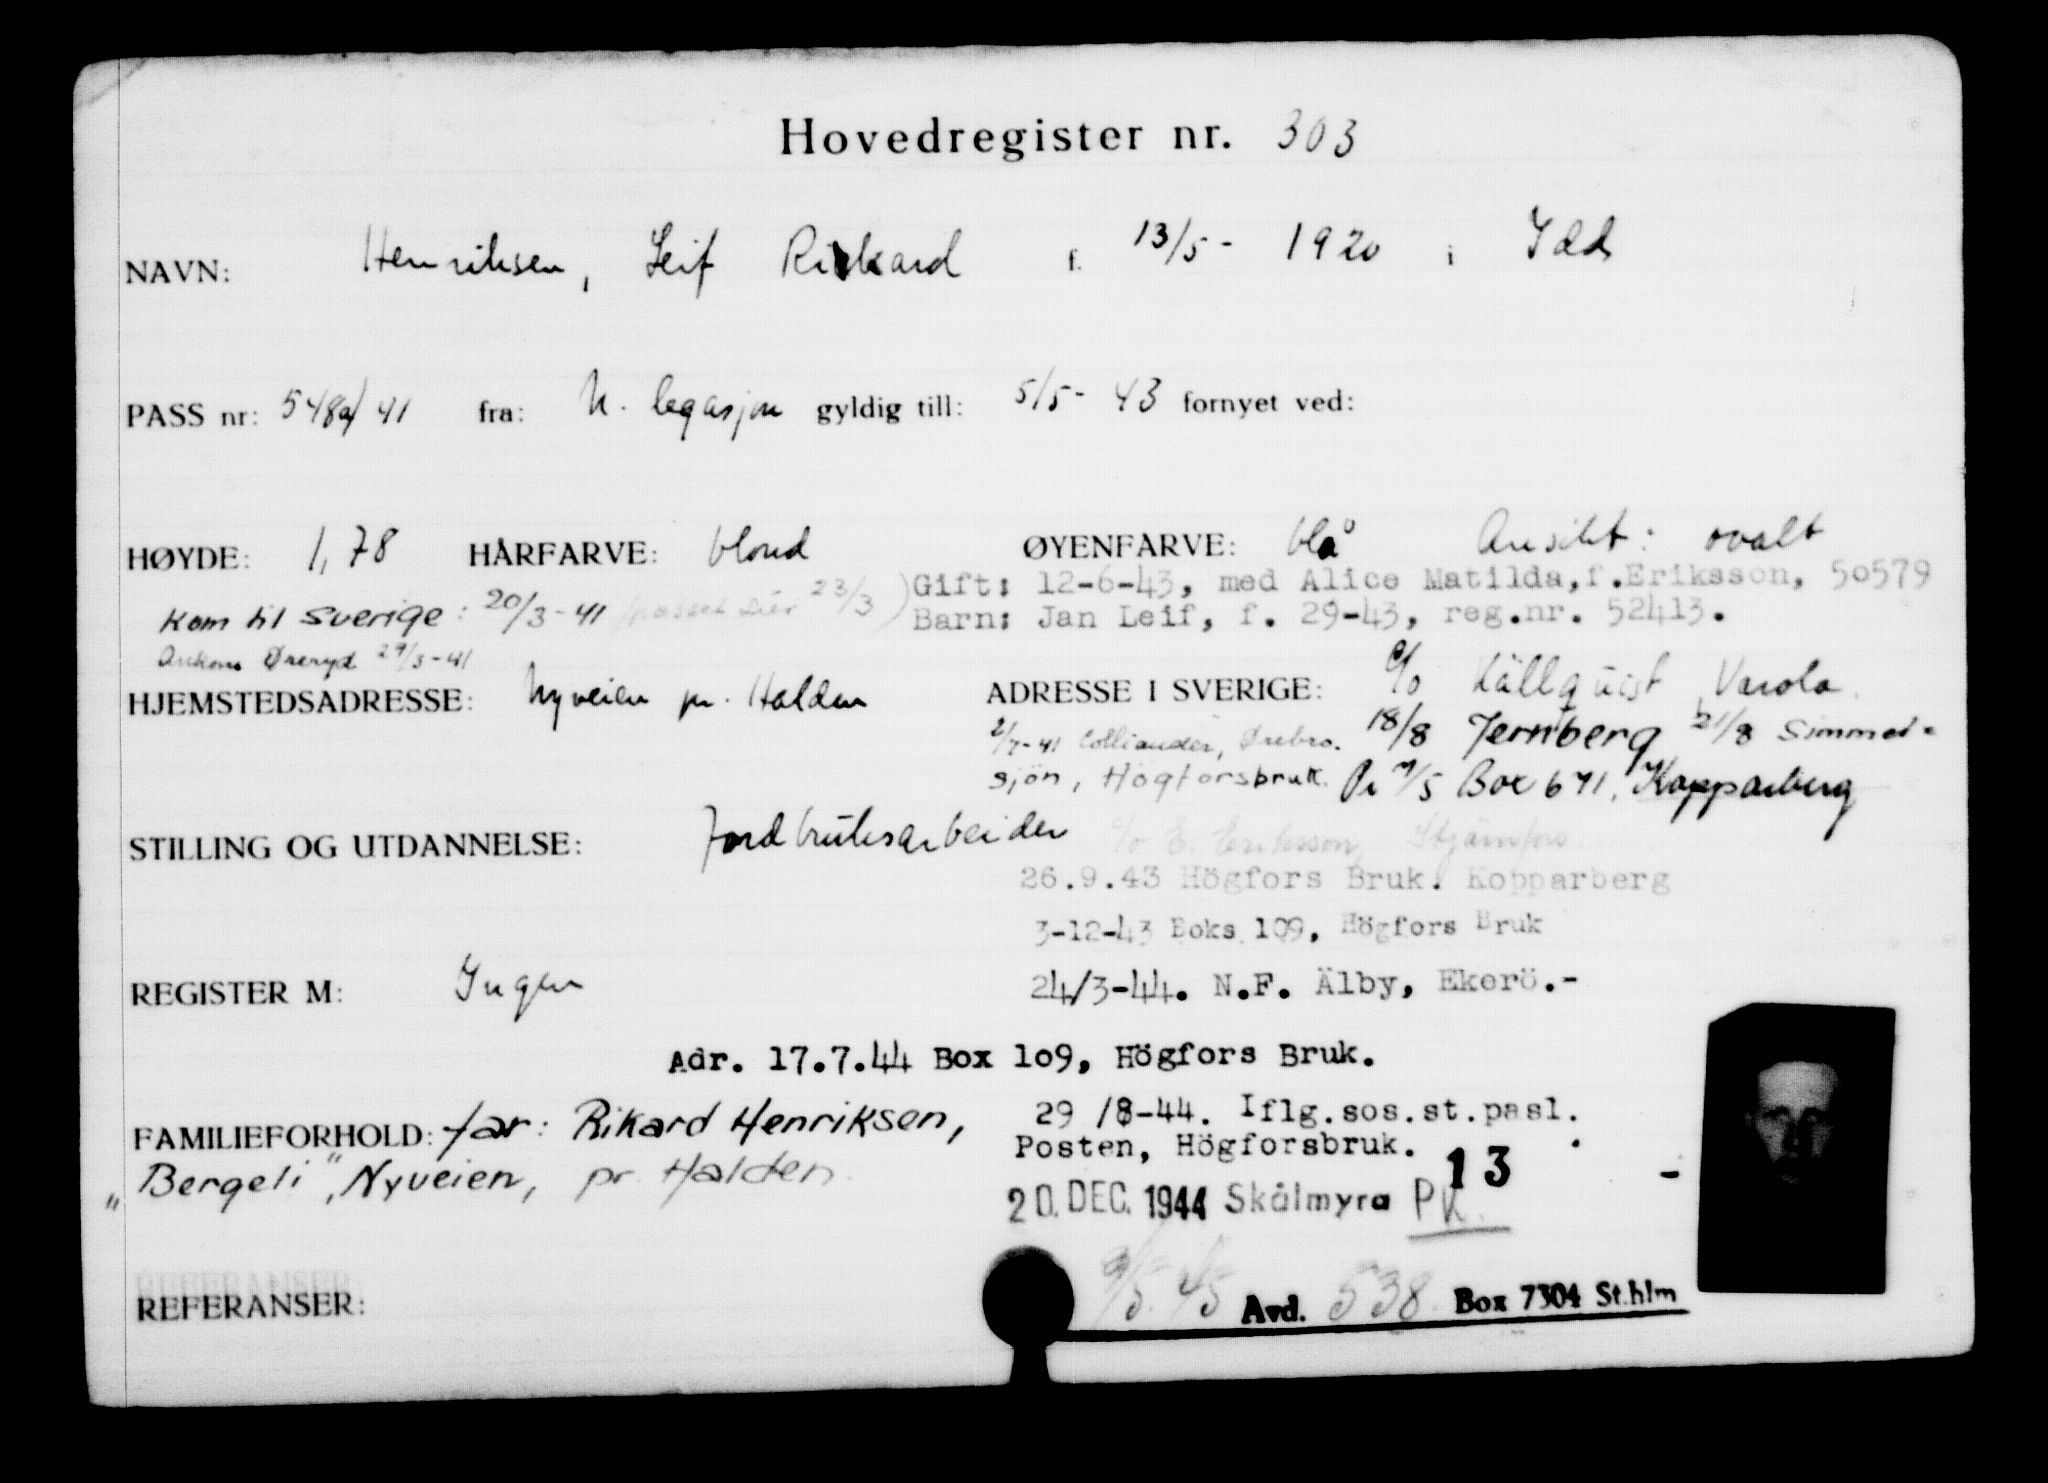 Hovedregister nr. 303
NAVN: Henriksen, Leif Rikard f. 13/5- 1920 i Idd
PASS nr: 548a/41 fra: N. legasjon gyldig till: 5/5- 43 fornyet ved:
HØYDE: 1,78 HÅRFARVE: blond ØYENFARVE: blå Ansikt: ovalt
Gift: 12-6-43, med Alice Matilda, f. Eriksson, 50579
Kom til Sverige: 20/3-41 (passet sier 23/3)
Barn: Jan Leif, f. 29-43, reg.nr. 52413.
Ankom Øreryd 29/3-41
HJEMSTEDSADRESSE: Nyveien pr. Halden
ADRESSE I SVERIGE: c/o Källquist, Varola.
2/7-41 Colliander, Örebro. 18/8 Jernberg 21/8 Simmed=
sjön, Högforsbruk. Box 641, Kopparberg
STILLING OG UTDANNELSE: Jordbruksarbeider
c/o E. Eriksson, Stjärnfors
26.9.43 Högfors Bruk. Kopparberg
3-12-43 Boks 109, Högfors Bruk
REGISTER M: Ingen
24/3-44. N.F. Älby, Ekerö.-
Adr. 17.7.44 Box 109, Högfors Bruk.
FAMILIEFORHOLD: far: Rikard Henriksen,
"Bergeli", Nyveien, pr. Halden.
29/8-44. Iflg.sos.st.pasl.
Posten, Högforsbruk.
13
20. DEC. 1944 Skålmyra PK.
REFERANSER:
9/5.45 Avd. 538. Box 7304 St.hlm